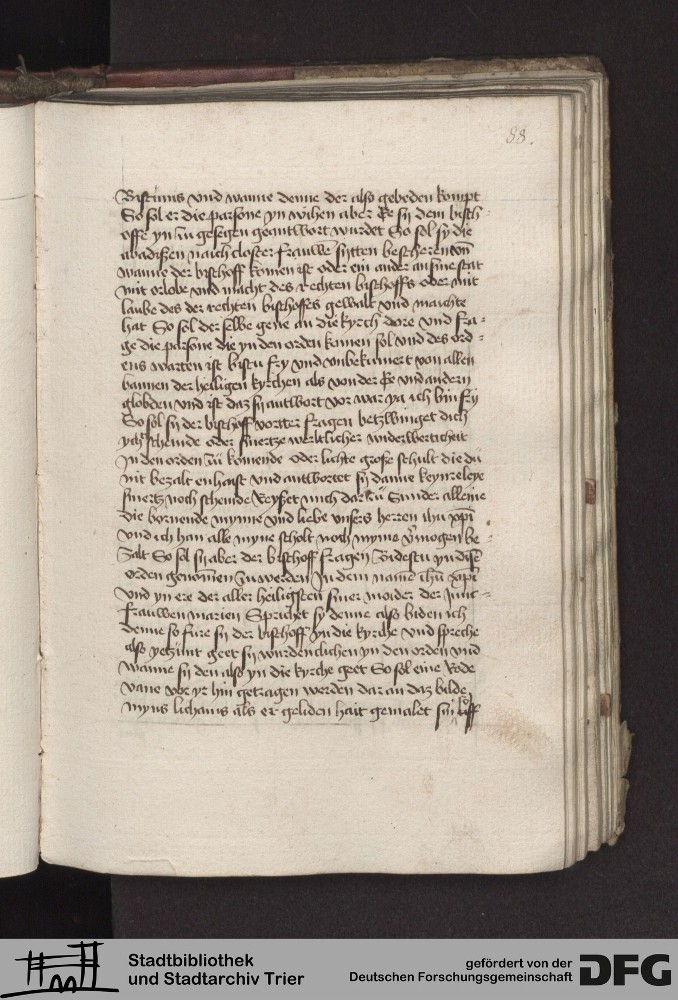 88.
Bistums vnd wanne denne der also gebeden kompt
So sol er die parsone yn wihen aber sy dem bisch-
offe yn zu gesegen geantwort wurdet So sol sy die
abadissen naich closter frauwen sytten bescheren vnd
wanne der bisschoff komen ist oder ein ander an sine stat
mit orlobe vnd macht des rechten bisschoffs oder mit
laube des der rechten bisschoffes gewalt vnd maichte
hat So sol der selbe gene an die kyrch dore vnd fra-
ge die parsone die yn den orden komen sol vnd des ord-
ens warten ist bistu fry vnd vnbekumert von allen
bannen der heiligen kyrchen als von der Ee vnd andern
globden vnd ist daz sy antwort vor war ya ich bin fry
So sol sy der bisschoff vortter fragen betzwinget dich
ycht scheinde oder smertze werltlicher widerwerticheit
In den orden zu komende oder lichte grosse schult die du
nit bezalt enhaist vnd antwortet sy danne keynreleye
smertz noch scheinde Reysset mich dar zu Sunder alleine
die bornende mynne vnd liebe vnsers herren ihu xpi
vnd ich han alle myne scholt noch myme vermogen be-
zalt So sol sy aber der bisschoff fragen Bidestu yn disen
orden genommen zu werden In dem name ihu xpi
vnd yn ere der aller heiligsten siner moider der Junc-
frauwen marien Sprichet sy denne also biden ich
denne so fure sy der bisschoff yn die kyrche vnd spreche
also yetzunt geet sy wurdenclichen yn den orden vnd
wanne sy den also yn die kyrche geet So sol eine Rode
vane vor yr hin getragen werden dar an daz bilde
myns lichams als er geliden hait gemalet sin
Stadtbibliothek
und Stadtarchiv Trier
gefördert von der
Deutschen Forschungsgemeinschaft
DFG